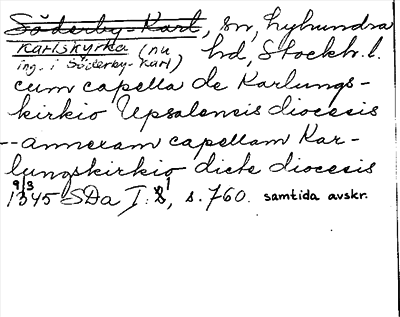 Söderby-Karl, sn, Lyhundra
Karlskyrka (nu hd, Stockh. l.
ing. i Söderby-Karl)
cum capella de Karlungs-
kirkio Upsalensis diocesis
-- annexam capellam Kar-
lungskirkio dicte diocesis
9/3 1345 SDa I:1, s. 760. samtida avskr.